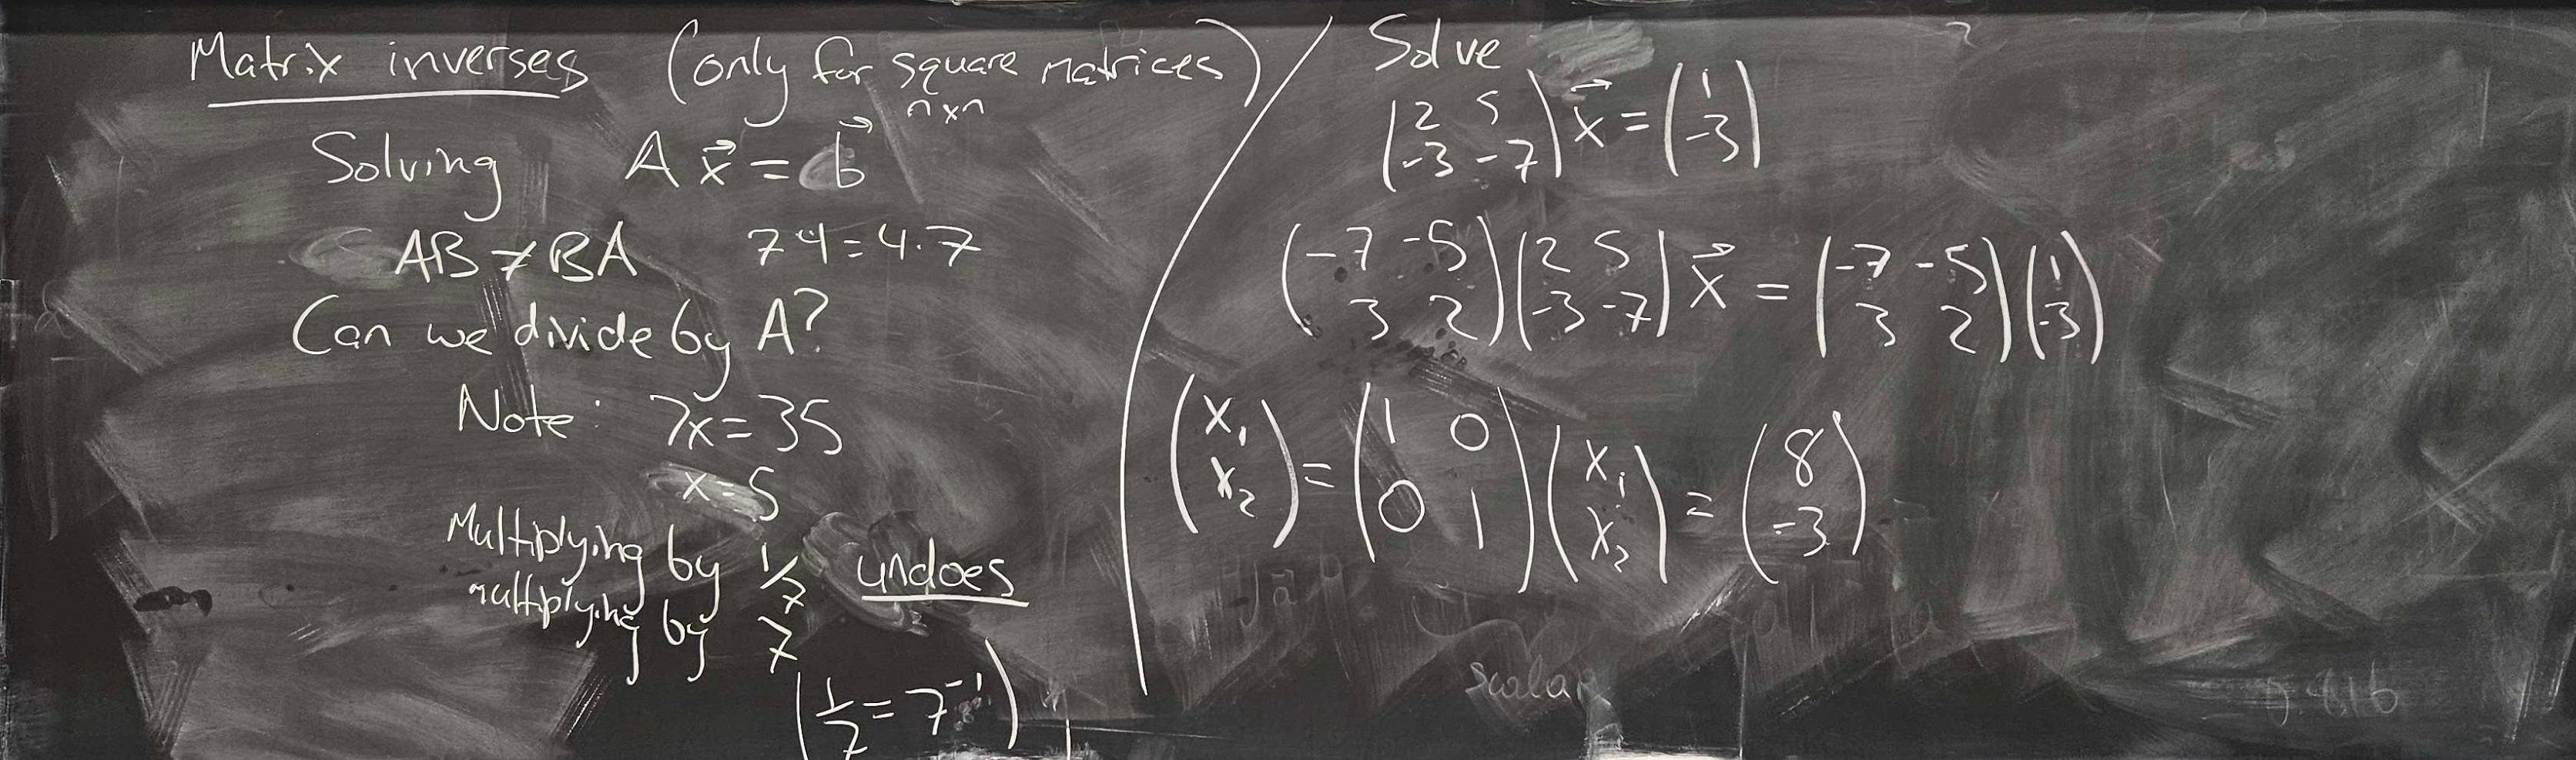 Matrix inverses (only for square matrices)
n×n
Solving A x⃗ = b⃗
AB ≠ BA 7·4=4·7
Can we divide by A?
Note: 7x=35
x=5
Multiplying by 1/7 undoes
multiplying by 7
(1/7 = 7⁻¹)
Solve
(2 5; -3 -7) x⃗ = (1; -3)
(-7 -5; 3 2)(2 5; -3 -7) x⃗ = (-7 -5; 3 2)(1; -3)
(x₁; x₂) = (1 0; 0 1)(x₁; x₂) = (8; -3)
Scalar